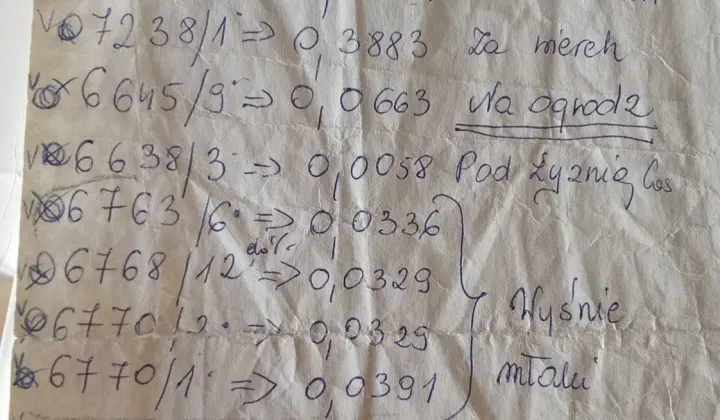 7238/1 => 0,3883 Za mierch
6645/9 => 0,0663 Na ogrodz
6638/3 => 0,0058 Pod Żyznią las
6763/6 => 0,0336
6768/12 => 0,0329
6770/2 => 0,0329 Wyśnie
6770/1 => 0,0391 młaki